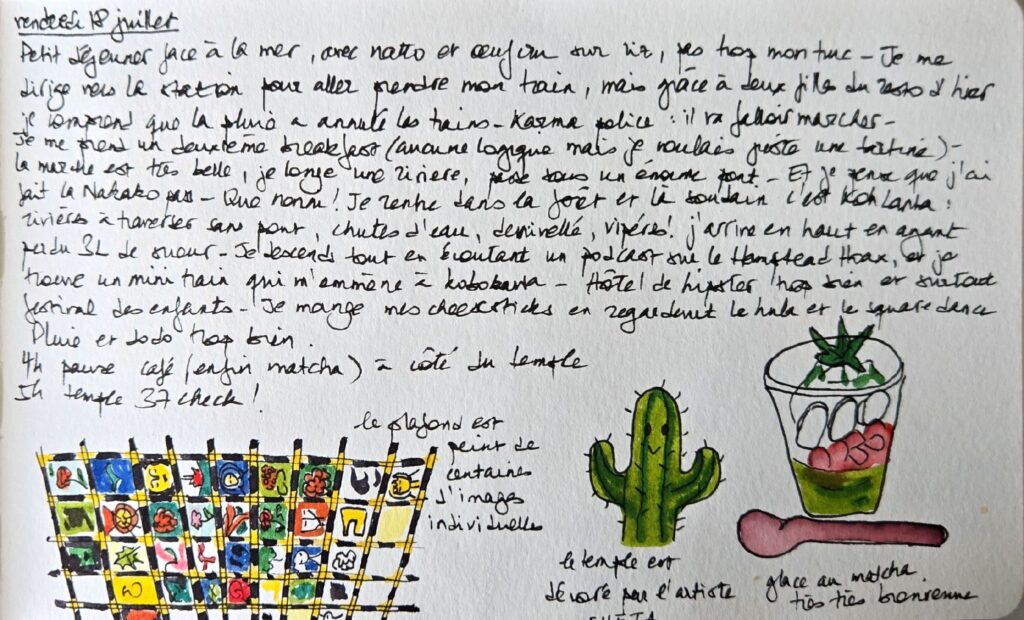 vendredi 18 juillet
Petit déjeuner face à la mer, avec natto et œuf cru sur riz, pas trop mon truc - Je me
dirige vers la station pour aller prendre mon train, mais grâce à deux filles du resto d'hier
je comprend que la pluie a annulé les trains - Karma police : il va falloir marcher -
Je me prend un deuxième breakfast (aucune logique mais je voulais juste une tartine) -
la marche est très belle, je longe une rivière, passe sous un énorme pont - Et je pense que j'ai
fait la Nakako pas - Que nenni ! Je rentre dans la forêt et là soudain c'est Koh Lanta :
rivières à traverser sans pont, chutes d'eau, dénivellé, vipères ! j'arrive en haut en ayant
perdu 3L de sueur - Je descends tout en écoutant un podcast sur le Hampstead Hoax, et je
trouve un mini train qui m'emmène à - Hôtel de hipster trop bien et surtout
festival des enfants - Je mange mes cheesesticks en regardent le hula et le square dance
Pluie et dodo trop bien.
4h pause café (enfin matcha) à côté du temple
5h temple 37 check !
le plafond est
peint de
centaines
d'images
individuelles
le temple est
décoré par l'artiste
glace au matcha
très très bienvenue